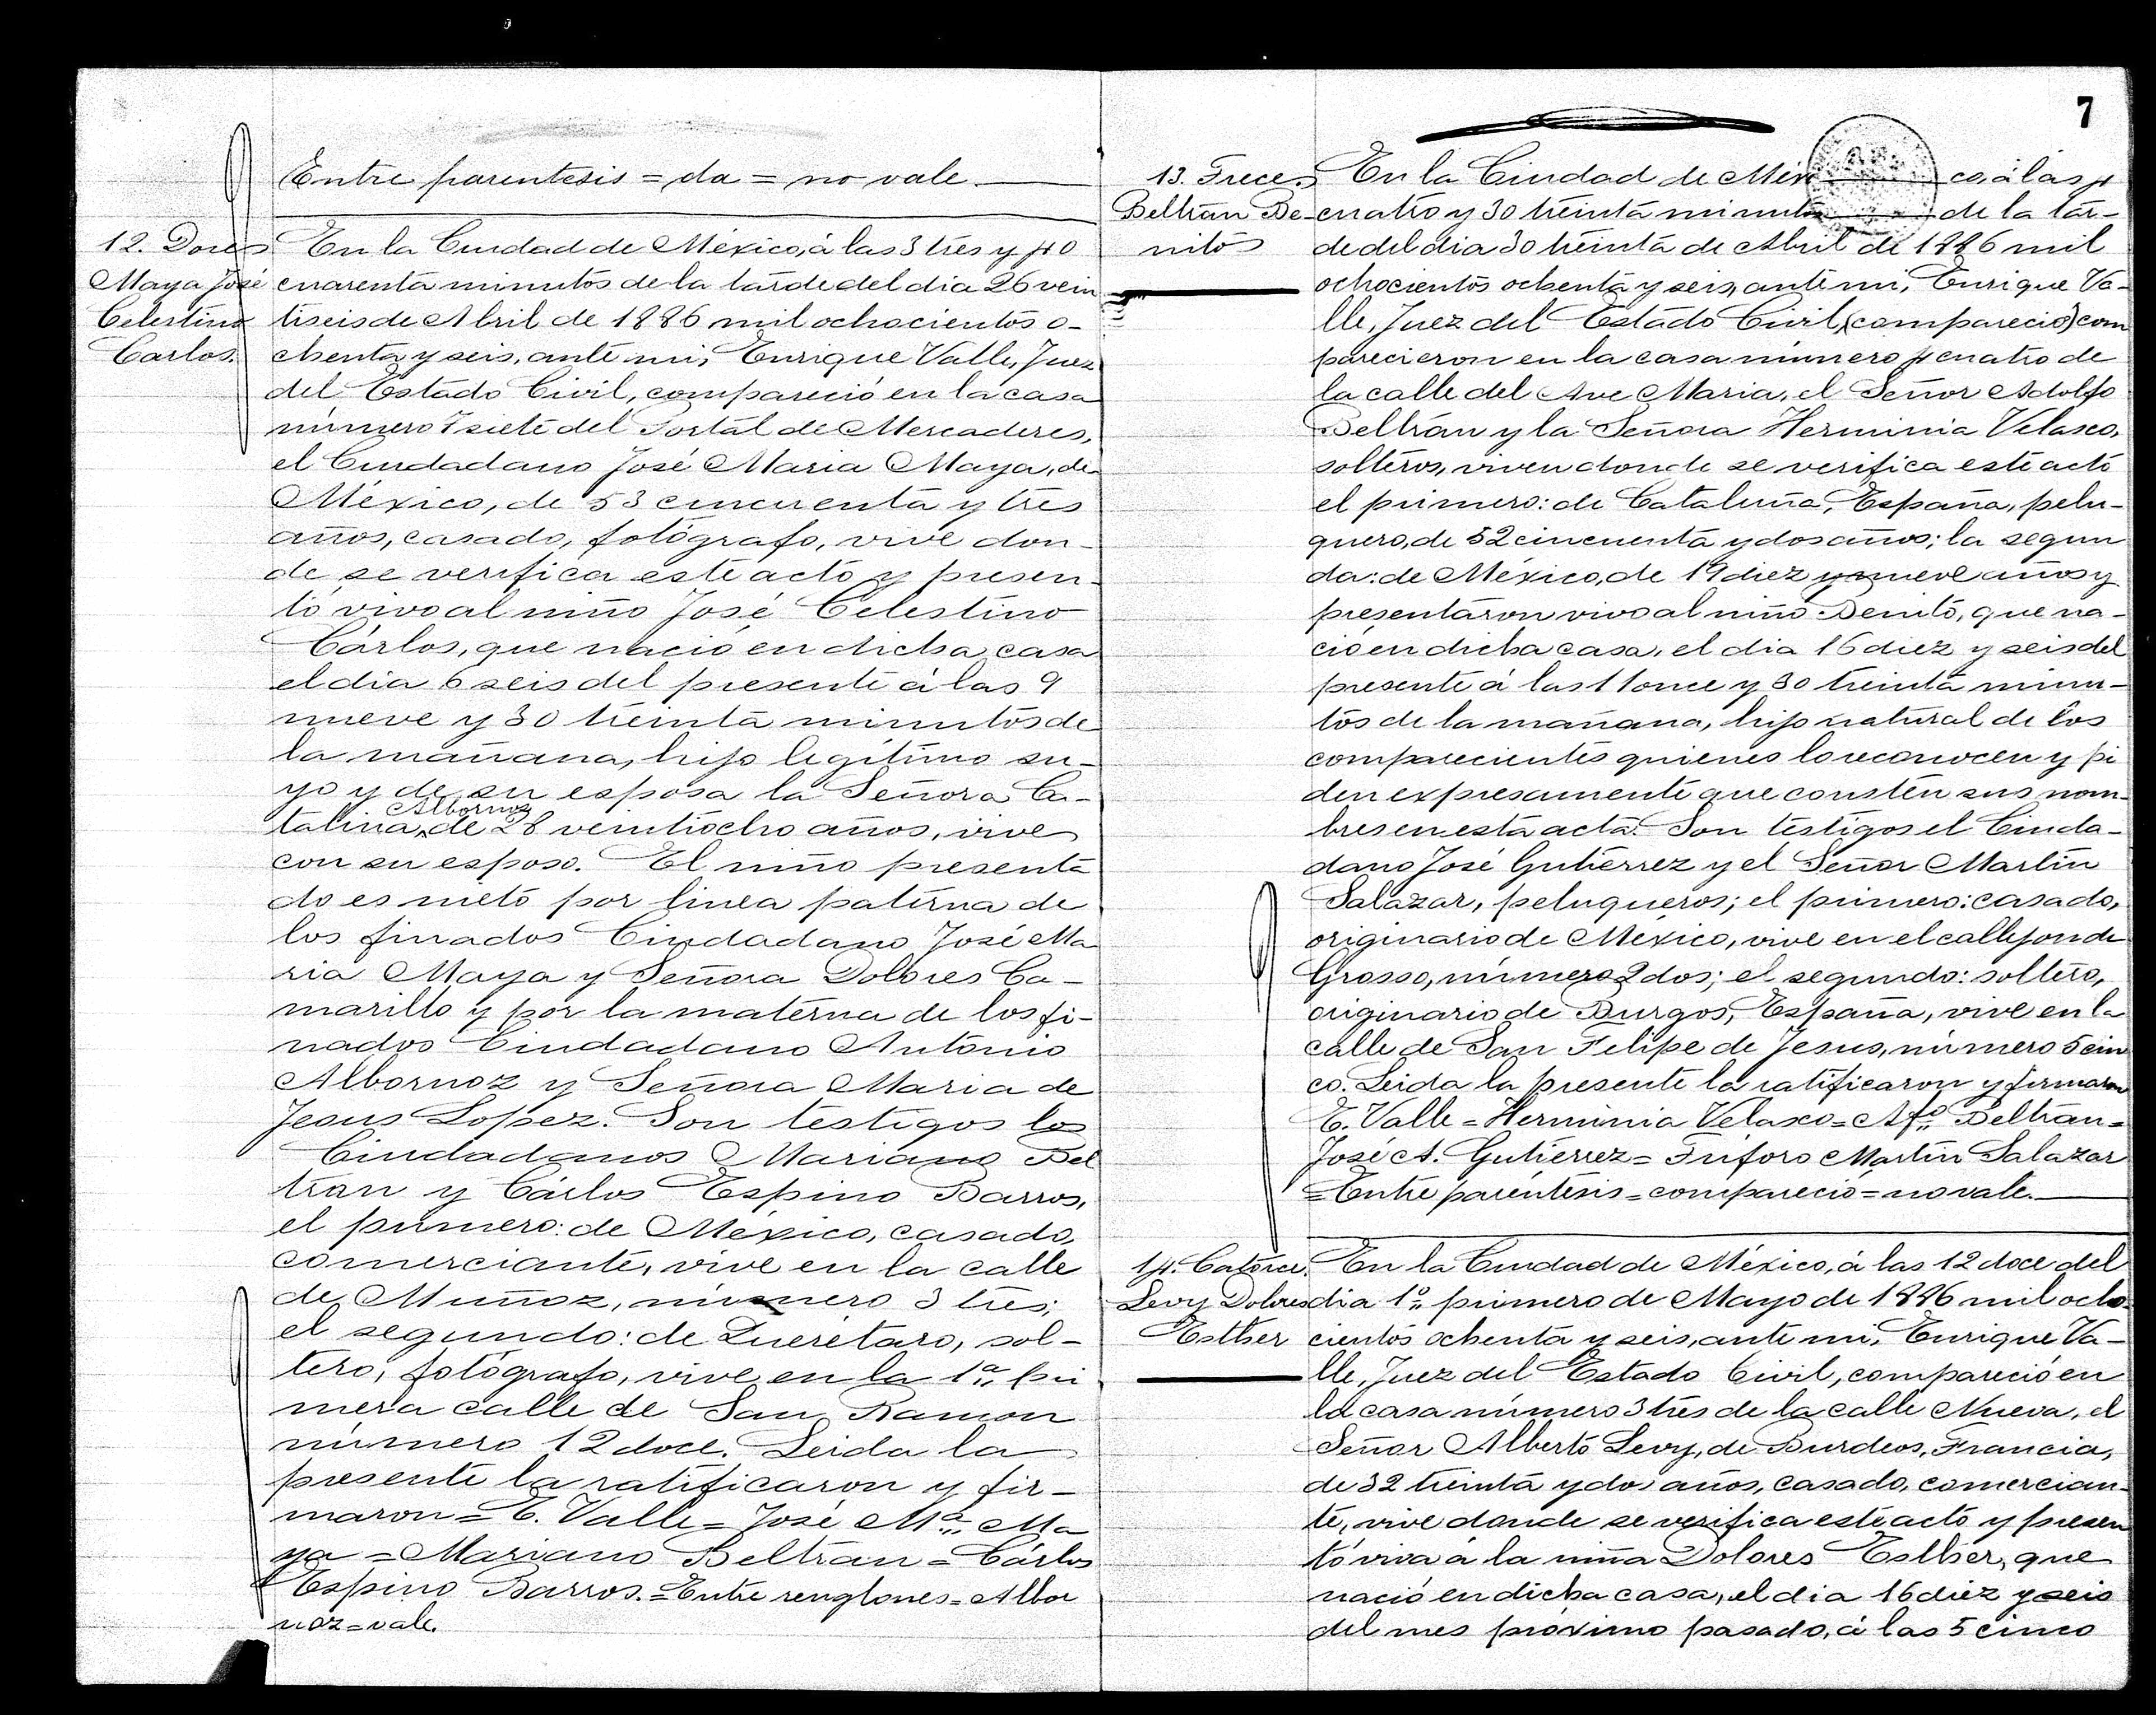 Entre parentesis = da = no vale.
12. Doce
Maya José
Celestino
Carlos.
En la Ciudad de México, á las 3 tres y 40
cuarenta minutos de la tarde del dia 26 vein
tiseis de Abril de 1886 mil ochocientos o-
chenta y seis, ante mi, Enrique Valle, Juez
del Estado Civil, compareció en la casa
número 7 siete del Portal de Mercaderes,
el Ciudadano José Maria Maya, de
México, de 53 cincuenta y tres
años, casado, fotógrafo, vive don-
de se verifica este acto y presen-
tó vivo al niño José Celestino
Cárlos, que nació en dicha casa
el dia 6 seis del presente á las 9
nueve y 30 treinta minutos de
la mañana, hijo legítimo su-
yo y de su esposa la Señora Ca-
Albornoz
talina, de 28 veintiocho años, vive
con su esposo. El niño presenta
do es nieto por linea paterna de
los finados Ciudadano José Ma
ria Maya y Señora Dolores Ca-
marillo y por la materna de los fi-
nados Ciudadano Antonio
Albornoz y Señora Maria de
Jesus Lopez. Son testigos los
Ciudadanos Mariano Bel
tran y Cárlos Espino Barros,
el primero: de México, casado,
comerciante, vive en la calle
de Muñoz, número 3 tres;
el segundo: de Querétaro, sol-
tero, fotógrafo, vive en la 1a. pri
mera calle de San Ramon
número 12 doce. Leida la
presente la ratificaron y fir-
maron = E. Valle = José Ma. Ma
ya = Mariano Beltran = Cárlos
Espino Barros. = Entre renglones = Albor
noz = vale.
7
13. Trece.
Beltrán Be-
nito
En la Ciudad de Méxi co, á las 4
cuatro y 30 treinta minutos de la tar-
de del dia 30 treinta de Abril de 1886 mil
ochocientos ochenta y seis, ante mi, Enrique Va-
lle, Juez del Estado Civil, (compareció) com
parecieron en la casa número 4 cuatro de
la calle del Ave Maria, el Señor Adolfo
Beltrán y la Señora Herminia Velasco,
solteros, viven donde se verifica este acto
el primero: de Cataluña, España, pelu-
quero, de 52 cincuenta y dos años; la segun
da: de México, de 19 diez y nueve años y
presentaron vivo al niño Benito, que na-
ció en dicha casa, el dia 16 diez y seis del
presente á las 11 once y 30 treinta minu-
tos de la mañana, hijo natural de los
comparecientes quienes lo reconocen y pi
den expresamente que consten sus nom-
bres en esta acta. Son testigos el Ciuda-
dano José Gutiérrez y el Señor Martín
Salazar, peluqueros; el primero: casado,
originario de México, vive en el callejon de
Grosso, número 2 dos; el segundo: soltero,
originario de Burgos, España, vive en la
calle de San Felipe de Jesus, número 5 cin
co. Leida la presente la ratificaron y firmaron
E. Valle = Herminia Velasco = Afo. Beltrán =
José A. Gutiérrez = Triforo Martín Salazar
= Entre paréntesis = compareció = no vale.
14. Catorce.
Levy Dolores
Esther
En la Ciudad de México, á las 12 doce del
dia 1o. primero de Mayo de 1886 mil ocho-
cientos ochenta y seis, ante mi, Enrique Va-
lle, Juez del Estado Civil, compareció en
la casa número 3 tres de la calle Nueva, el
Señor Alberto Levy, de Burdeos, Francia,
de 32 treinta y dos años, casado, comercian-
te, vive donde se verifica este acto y presen
tó viva á la niña Dolores Esther, que
nació en dicha casa, el dia 16 diez y seis
del mes próximo pasado, á las 5 cinco